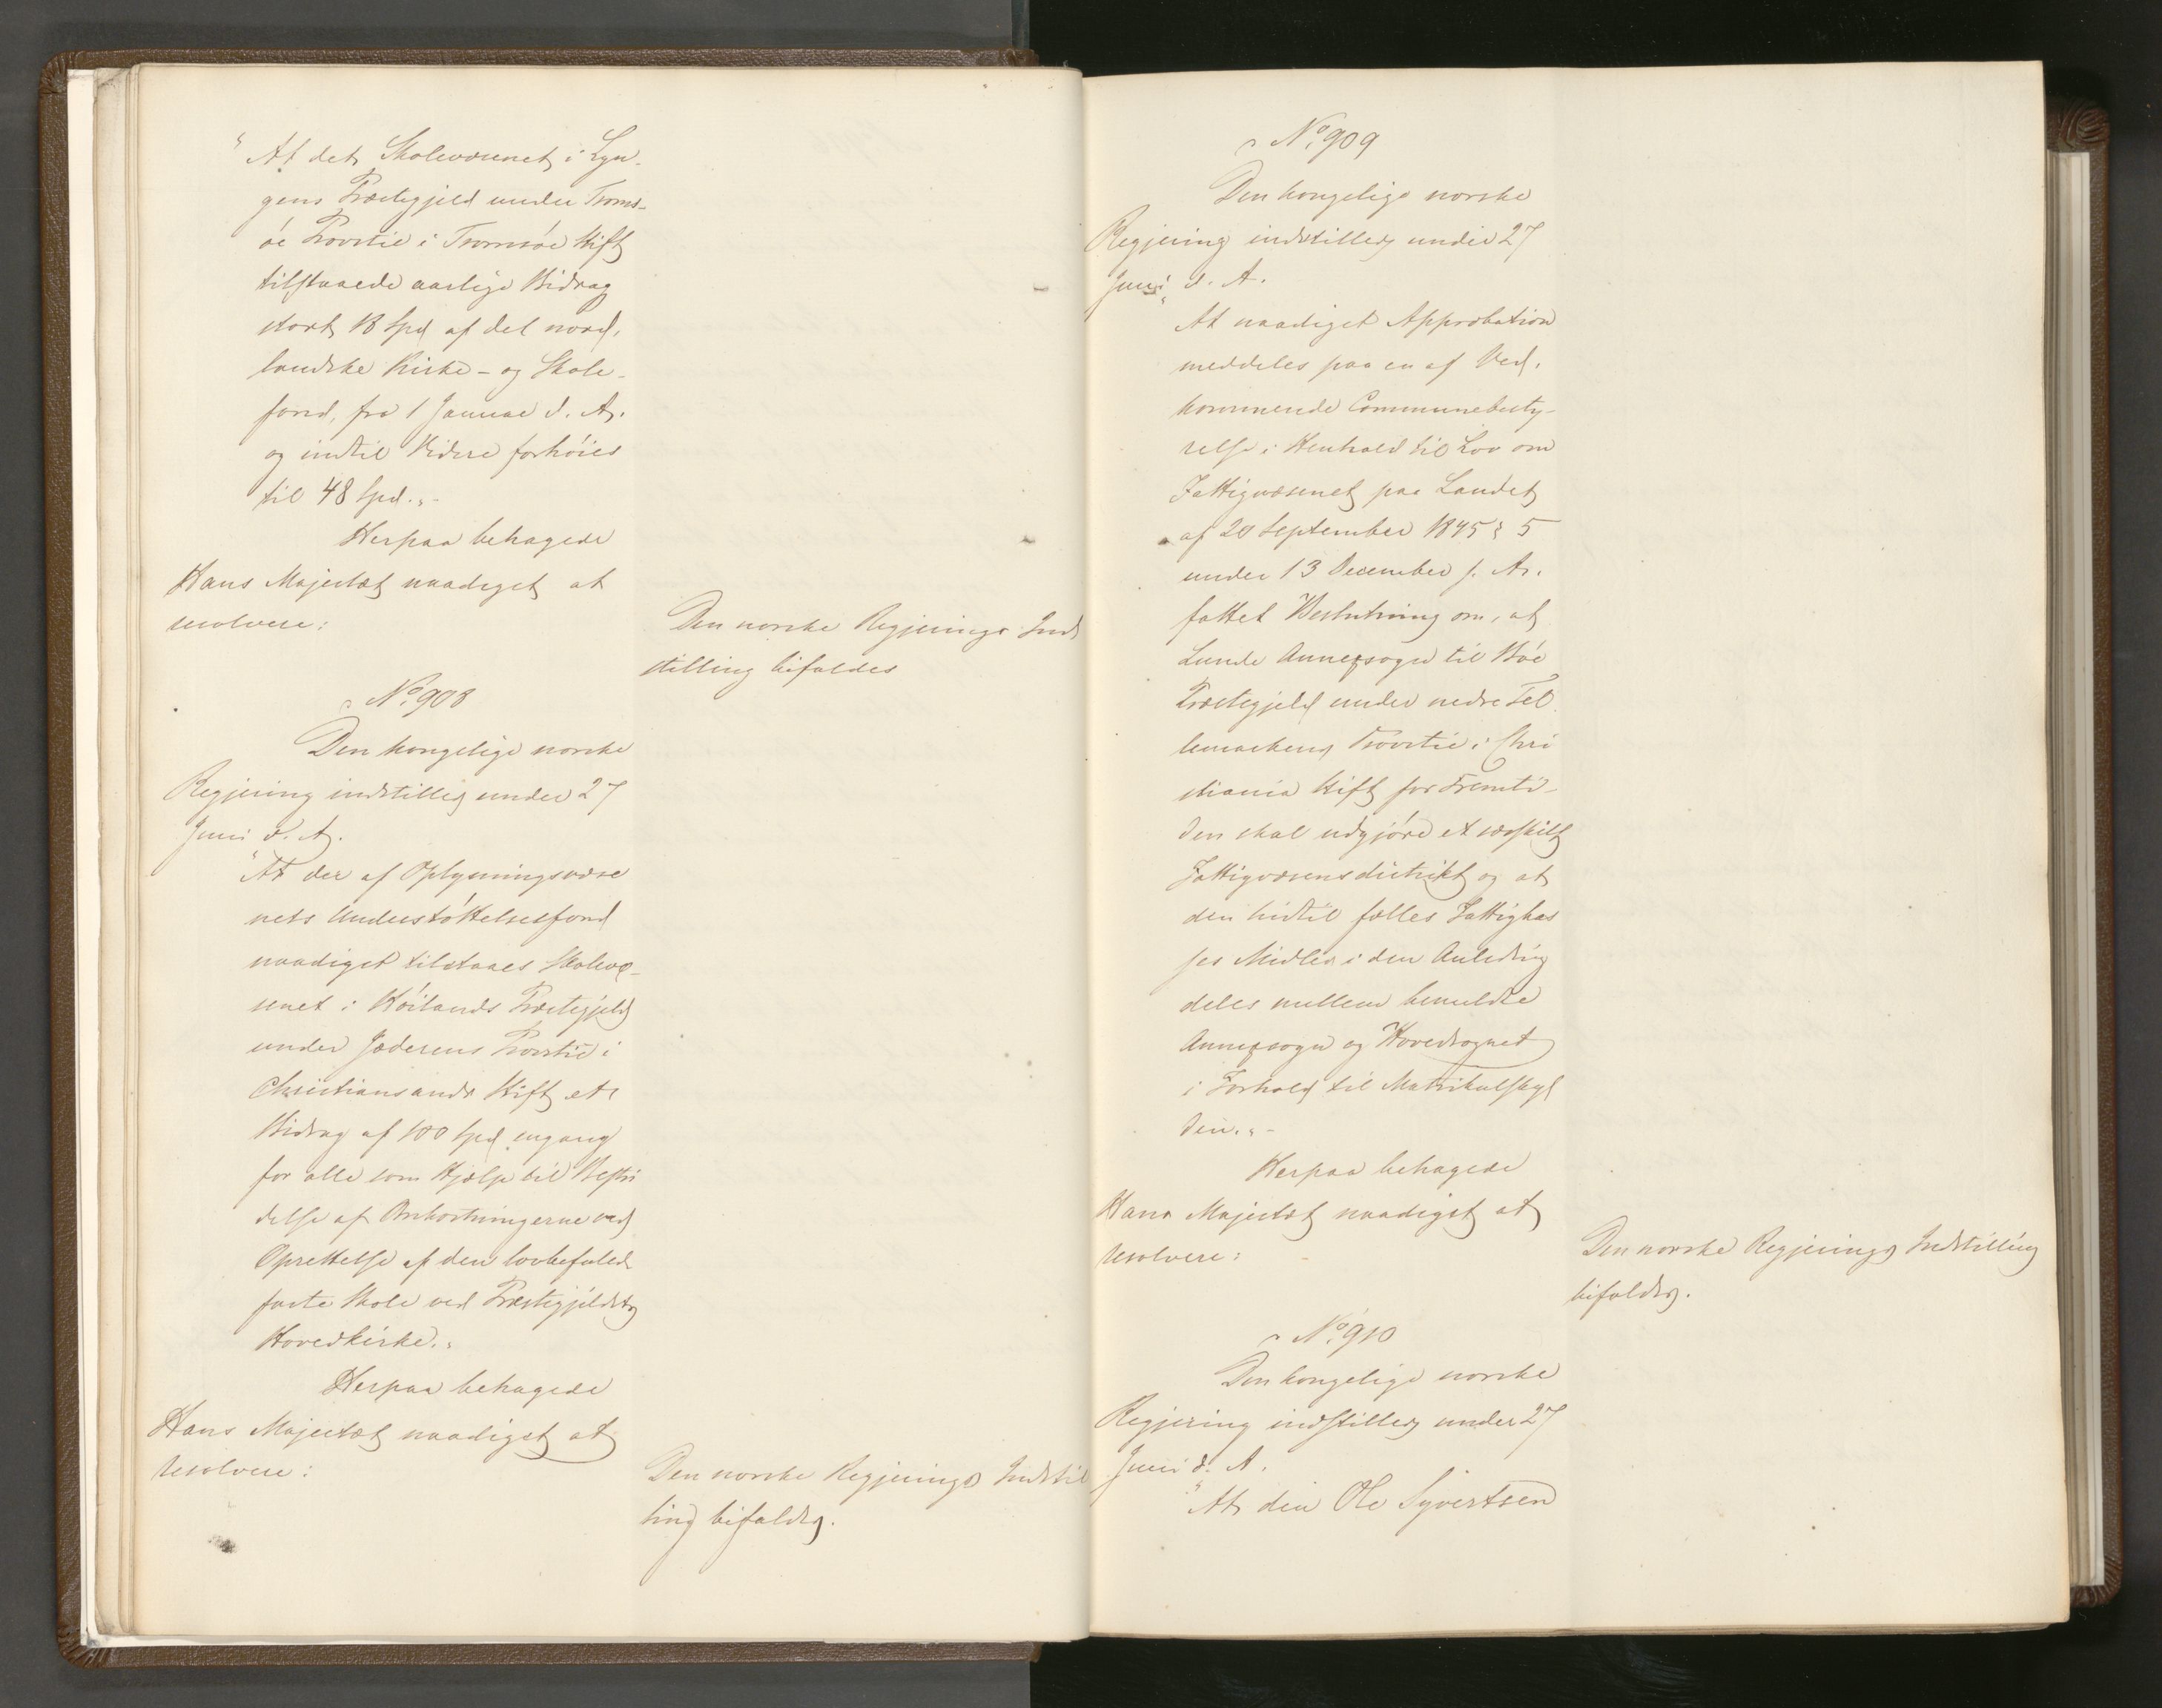 "At det Skolevæsenet i Lyn-
gens Præstegjeld under Troms-
öe Provstie i Tromsöe Stift
tilstaaede aarlige Bidrag
stort 18 Spd af det nord-
landske Kirke- og Skole-
fond, fra 1 Januar d. A.
og indtil Videre forhöies
til 48 Spd."-
Herpaa behagede
Hans Majestæt naadigst at
resolvere:
Den norske Regjerings Ind
stilling bifaldes
No. 908
Den kongelige norske
Regjering indstiller under 27
Juni d. A.
"At der af Oplysningsvæse
nets Understöttelsesfond
naadigst tilstaaes Skolevæ-
senet i Höilands Præstegjeld
under Jæderens Provstie i
Christiansands Stift et
Bidrag af 100 Spd engang
for alle som Hjælp til Bestri
delse af Omkostningerne ved
Oprettelse af den lovbefalede
faste Skole ved Præstegjeldets
Hovedkirke."
Herpaa behagede
Hans Majestæt naadigst at
resolvere:
Den norske Regjerings Indstil
ling bifaldes.
No. 909
Den kongelige norske
Regjering indstiller under 27
Juni d. A.
"At naadigst Approbation
meddeles paa en af Ved-
kommende Communebesty-
relse i Henhold til Lov om
Fattigvæsenet paa Landet
af 20 September 1845 § 5
under 13 December f. A.
fattet Beslutning om, at
Lunde Annexsogn til Böe
Præstegjeld under nedre Tel
lemarkens Provstie i Chri
stiania Stift for Fremti-
den skal udgjöre et særskilt
Fattigvæsensdistrikt og at
den hidtil fælles Fattigkas
ses Midler i den Anledning
deles mellem bemeldte
Annexsogn og Hovedsognet
i Forhold til Matrikulskyl
den."-
Herpaa behagede
Hans Majestæt naadigst at
resolvere:
Den norske Regjerings Indstilling
bifaldes.
No. 910
Den kongelige norske
Regjering indstiller under 27
Juni d. A.
"At den Ole Syvertsen